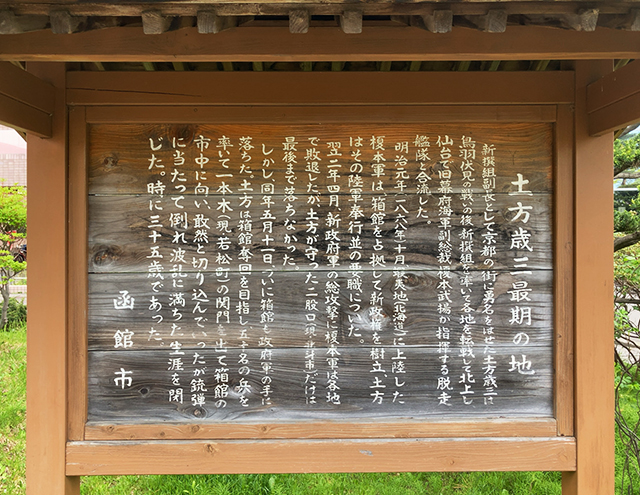 土方歳三最期の地
新撰組副長として京都の街に勇名をはせた土方歳三は
鳥羽伏見の戦いの後、新撰組を率いて各地を転戦して北上し
仙台で旧幕府海軍副総裁榎本武揚が指揮する脱走
艦隊と合流した。
明治元年(一八六八年)十月蝦夷地(北海道)に上陸した
榎本軍は、箱館を占拠して新政権を樹立、土方
はその陸軍奉行並の要職についた。
翌二年四月、新政府軍の総攻撃に榎本軍は各地
で敗退したが、土方が守った二股口(現北斗市)だけは
最後まで落ちなかった。
しかし、同年五月十一日、ついに箱館も政府軍の手に
落ちた。土方は箱館奪回を目指し、五十名の兵を
率いて一本木(現若松町)の関門を出て箱館の
市中に向い、敢然と切り込んでいったが、銃弾
に当たって倒れ波乱に満ちた生涯を閉
じた。時に三十五歳であった。
函館市